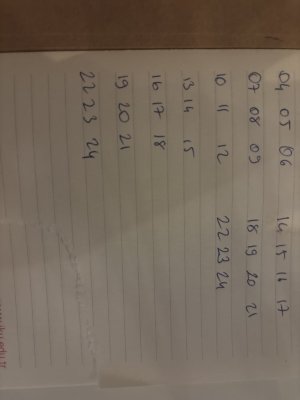 04 05 06 14 15 16 17
07 08 09 18 19 20 21
10 11 12 22 23 24
13 14 15
16 17 18
19 20 21
22 23 24